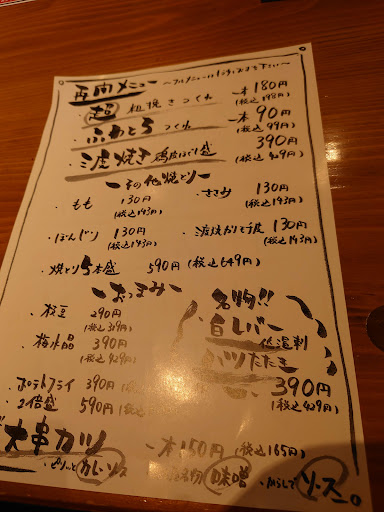 再開メニュー
超 粗挽きつくね 一本180円
(税込198円)
ふわとろつくね 一本90円
(税込99円)
三度焼き 鶏皮 盛 390円
(税込429円)
~その他焼とり~
・もも 130円
(税込143円)
・ささみ 130円
(税込143円)
・ぼんじり 130円
(税込143円)
・三度焼かりとり皮 130円
(税込143円)
・焼とり5本盛 590円 (税込649円)
~おつまみ~
・枝豆 290円
(税込319円)
・梅水晶 390円
(税込429円)
・ポテトフライ 390円(税込
・2倍盛 590円(税込
名物!!
白レバー
低温刺
ハツたたき
390円
(税込429円)
大串カツ 一本150円(税込165円)
・ピリッとカレーソース
味噌
・からしでソース